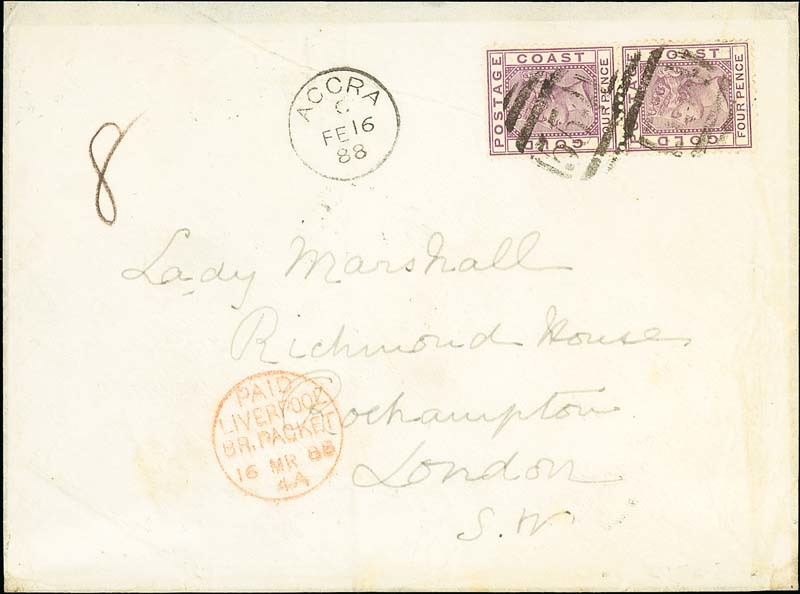 POSTAGE COAST FOUR PENCE GOLD
COAST FOUR PENCE GOLD
ACCRA
C
FE 16
88
8
Lady Marshall
Richmond House
Roehampton
London
S.W
PAID
LIVERPOOL
BR. PACKET
16 MR 88
4A